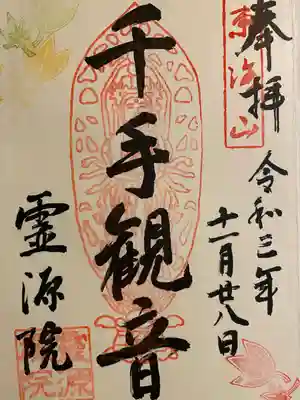 奉拝
東海山
令和三年
十一月廿八日
千手観音
霊源院